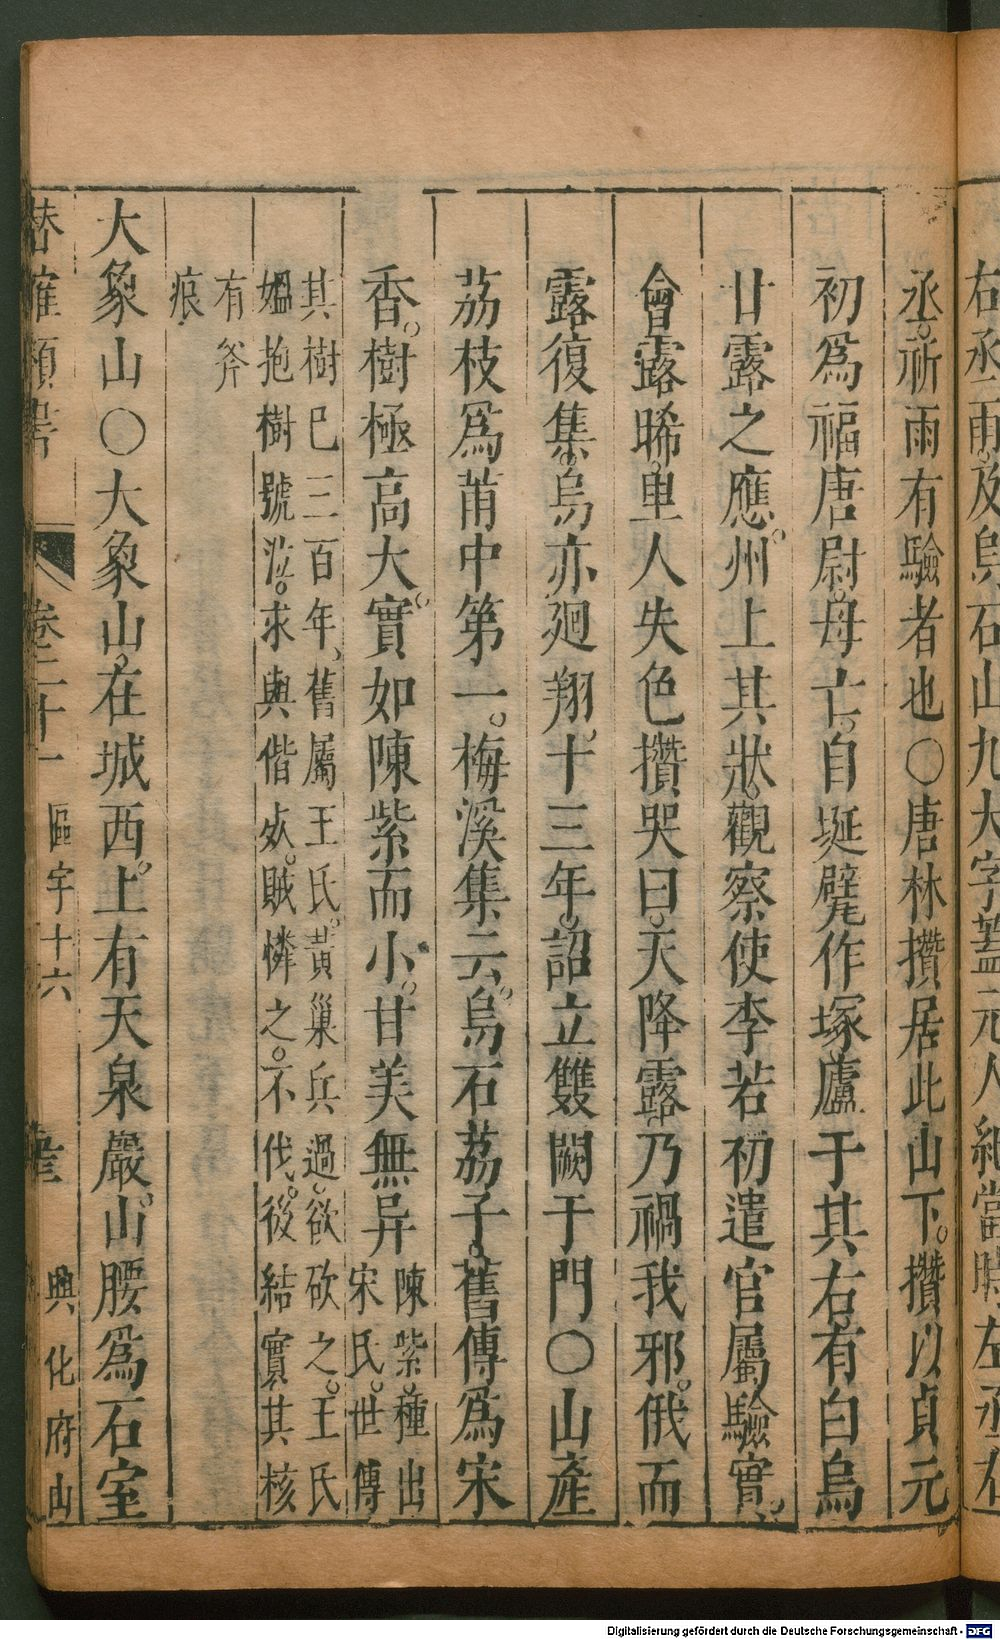 右丞二雨及烏石山九大字蓋元人
左丞右
丞祈雨有驗者也〇唐林攢居此山下攢以貞元
初爲福唐尉母亡自埏甓作塚廬于其右有白烏
甘露之應州上其狀觀察使李若初遣官屬驗實
會露晞里人失色攢哭曰天降露乃禍我邪俄而
露復集烏亦廻翔十三年詔立雙闕于門〇山產
荔枝爲莆中第一梅溪集云烏石荔子舊傳爲宋
香樹極高大實如陳紫而小甘美無异陳紫種出
宋氏世傳
其樹巳三百年舊屬王氏黃巢兵過欲砍之王氏
媼抱樹號泣求與偕死賊憐之不伐後結實其核
有斧
痕
大象山〇大象山在城西上有天泉巖山腰爲石室
卷二十一 區宇十六 興化府山
Digitalisierung gefördert durch die Deutsche Forschungsgemeinschaft - DFG